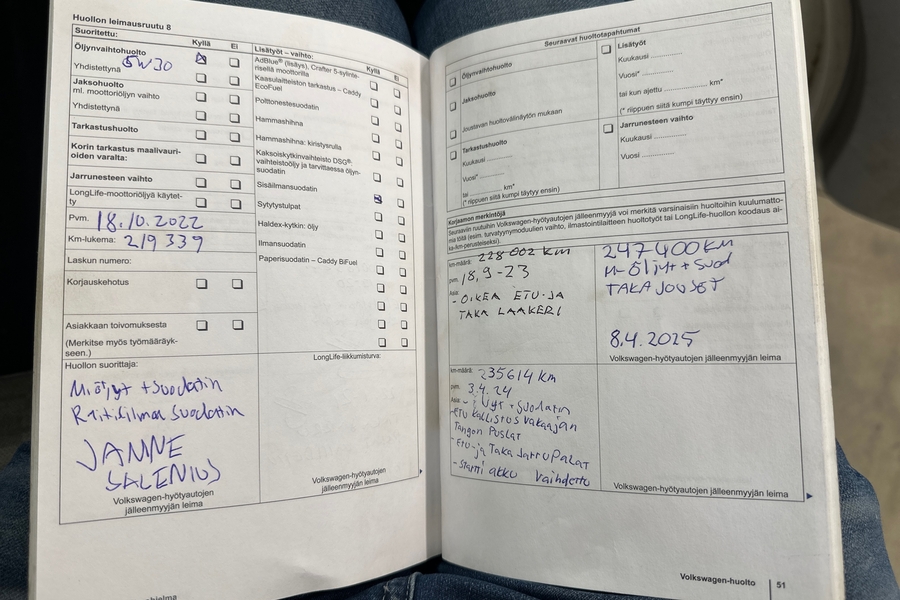 Huollon leimausruutu 8
Suoritettu: Kyllä Ei
Öljynvaihtohuolto
Yhdistettynä 5W30
Jaksohuolto
ml. moottoriöljyn vaihto
Yhdistettynä
Tarkastushuolto
Korin tarkastus maalivauri-
oiden varalta:
Jarrunesteen vaihto
LongLife-moottoriöljyä käytet-
ty
Pvm. 18.10.2022
Km-lukema: 219 339
Laskun numero:
Korjauskehotus
Asiakkaan toivomuksesta
(Merkitse myös työmääräyk-
seen.)
Huollon suorittaja:
M.öljyt + suodatin
Raitisilma suodatin
JANNE
SALENIUS
Volkswagen-hyötyautojen
jälleenmyyjän leima
Lisätyöt – vaihto: Kyllä Ei
AdBlue® (lisäys), Crafter 5-sylinte-
risellä moottorilla
Kaasulaitteiston tarkastus – Caddy
EcoFuel
Polttonestesuodatin
Hammashihna
Hammashihna: kiristysrulla
Kaksoiskytkinvaihteisto DSG®-
vaihteistoöljy ja tarvittaessa öljyn-
suodatin
Sisäilmansuodatin
Sytytystulpat
Haldex-kytkin: öljy
Ilmansuodatin
Paperisuodatin – Caddy BiFuel
LongLife-liikkumisturva:
Volkswagen-hyötyautojen
jälleenmyyjän leima
Seuraavat huoltotapahtumat
Öljynvaihtohuolto
Jaksohuolto
Joustavan huoltovälinäytön mukaan
Tarkastushuolto
Kuukausi
Vuosi*
tai km*
(* riippuen siitä kumpi täyttyy ensin)
Lisätyöt
Kuukausi
Vuosi*
tai kun ajettu km*
(* riippuen siitä kumpi täyttyy ensin)
Jarrunesteen vaihto
Kuukausi
Vuosi
Korjaamon merkintöjä
Seuraaviin ruutuihin Volkswagen-hyötyautojen jälleenmyyjä voi merkitä varsinaisiin huoltoihin kuulumatto-
mia töitä (esim. turvatyynymoduulien vaihto, ilmastointilaitteen huoltotyöt tai LongLife-huollon koodaus ai-
ka-/km-perusteiseksi).
km-määrä: 228 002 km
pvm. 18.9-23
Asia:
- OIKEA ETU-JA
TAKA LAAKERI
247400KM
M-Öljyt + Suod
TAKA JOUSET
8.4.2025
Volkswagen-hyötyautojen jälleenmyyjän leima
km-määrä: 235614 km
pvm. 3.4.24
Asia: + Suodatin
- ETU kallistus vakaajan
Tangon Puslat
- ETU-ja Taka JarruPalat
- Startti akku Vaihdettu
Volkswagen-hyötyautojen jälleenmyyjän leima
Volkswagen-huolto 51